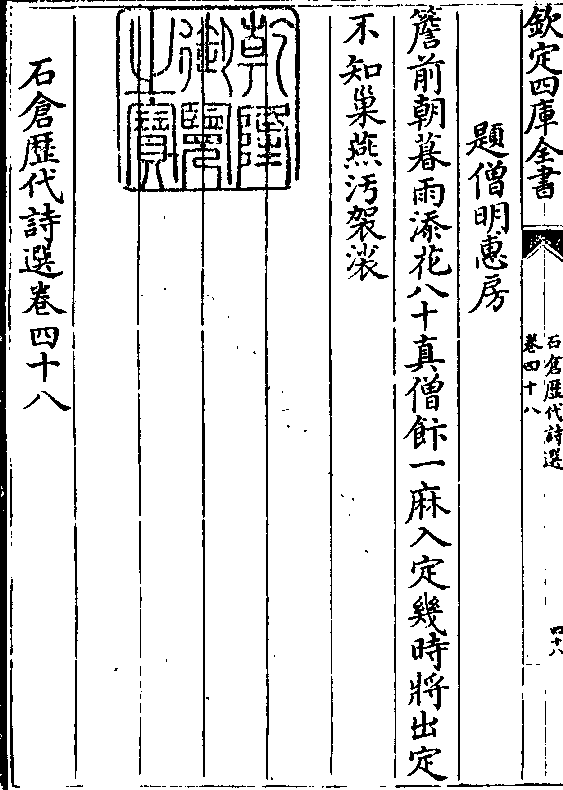 欽定四庫全書
石倉歷代詩選
卷四十八
四十八
題僧明惠房
簷前朝暮雨添花八十真僧飰一麻入定幾時將出定
不知巢燕汚袈裟
乾隆
御覽
之寶
石倉歷代詩選卷四十八